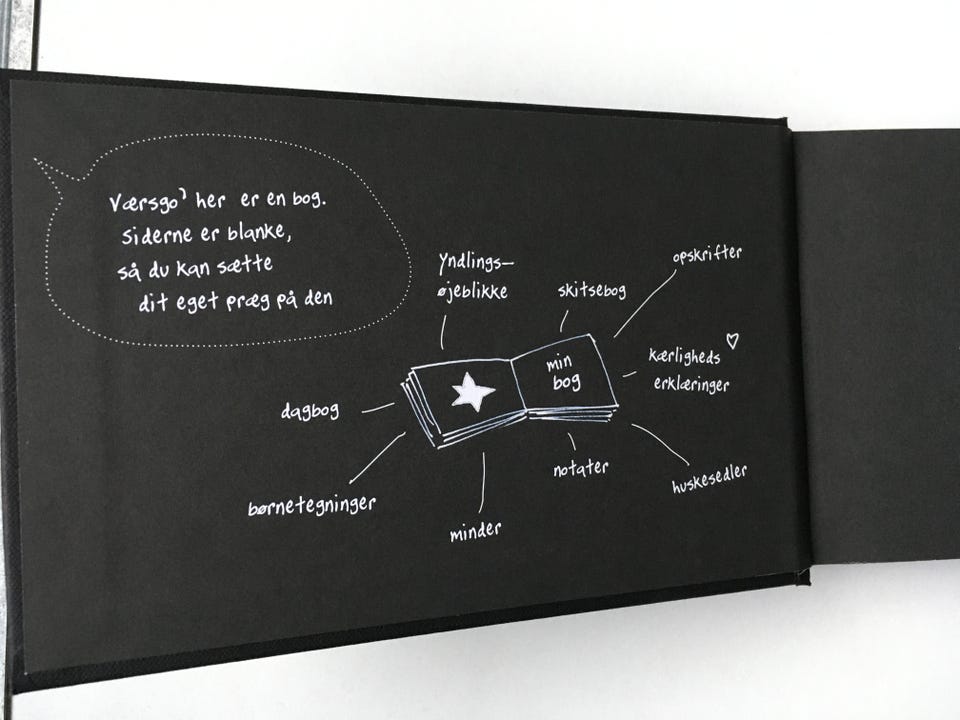 Værsgo' her er en bog.
siderne er blanke,
så du kan sætte
dit eget præg på den
yndlings-
øjeblikke
skitsebog
opskrifter
kærligheds
erklæringer
min
bog
dagbog
børnetegninger
minder
notater
huskesedler